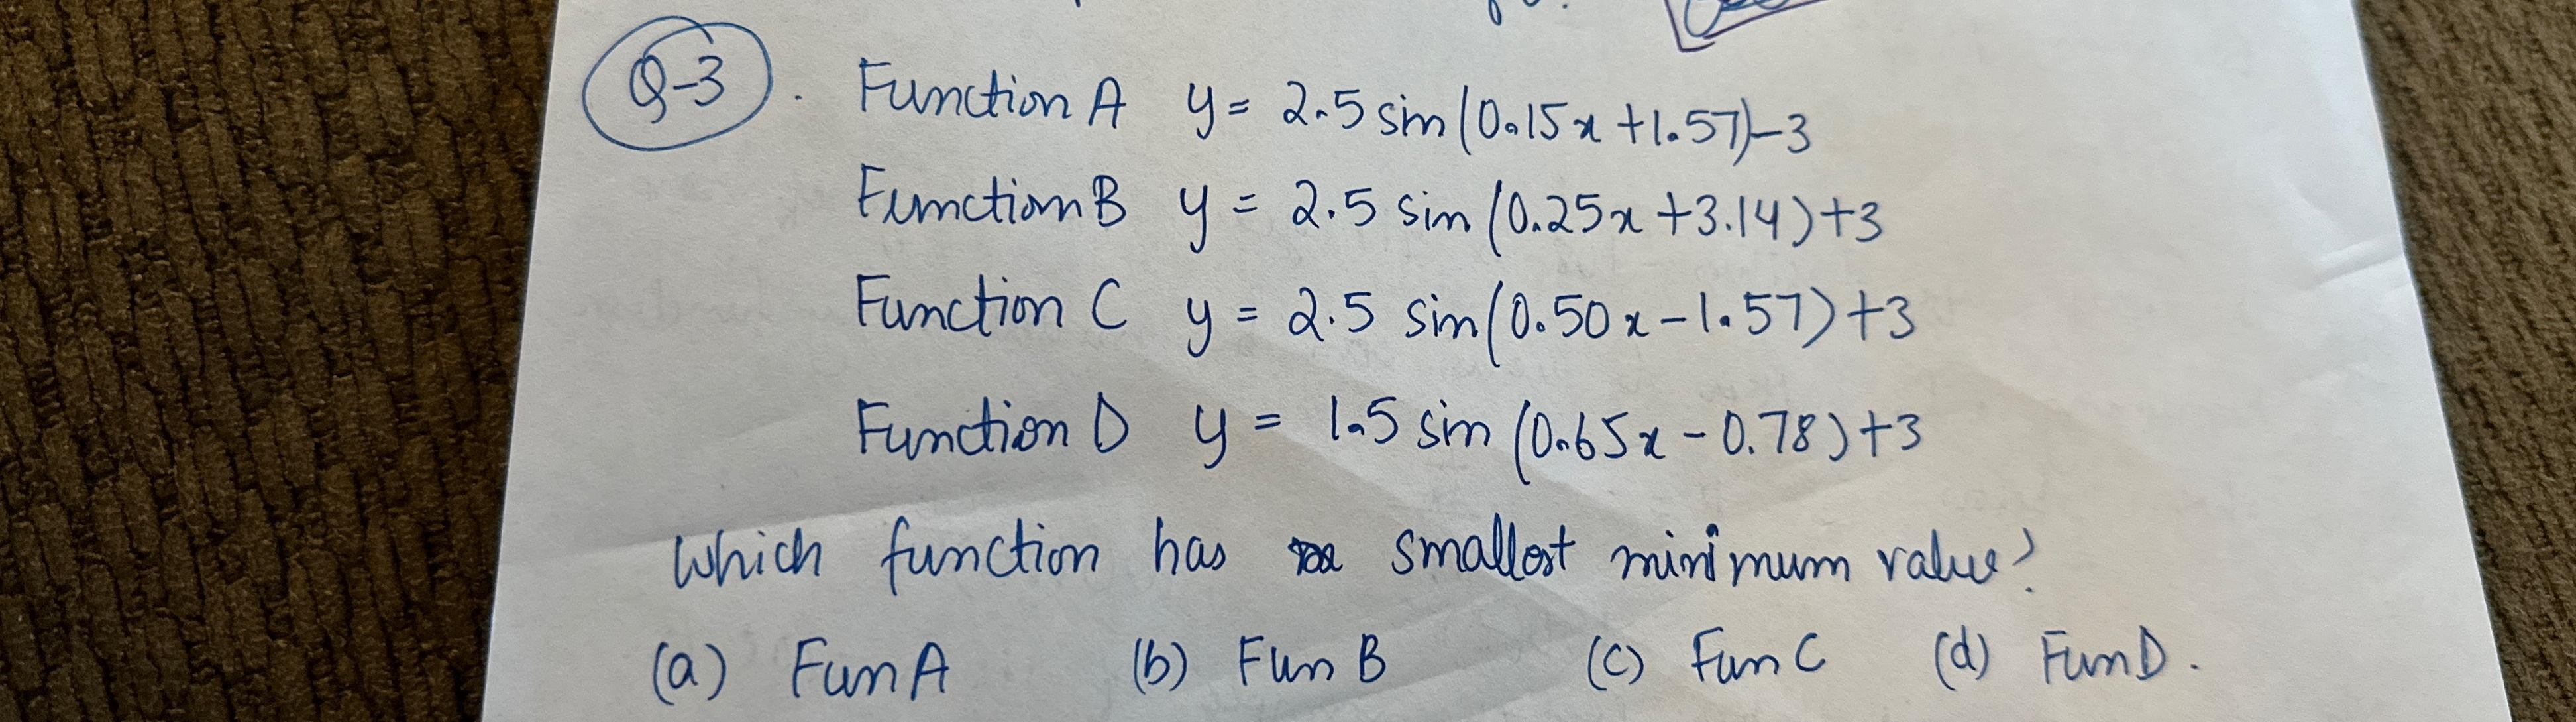 Q-3. Function A y = 2.5 sin(0.15x +1.57)-3
Function B y = 2.5 sin (0.25x +3.14)+3
Function C y = 2.5 sin(0.50x -1.57)+3
Function D y = 1.5 sin (0.65x - 0.78)+3
Which function has smallest minimum value?
(a) Fun A (b) Fun B (c) Fun C (d) Fun D.